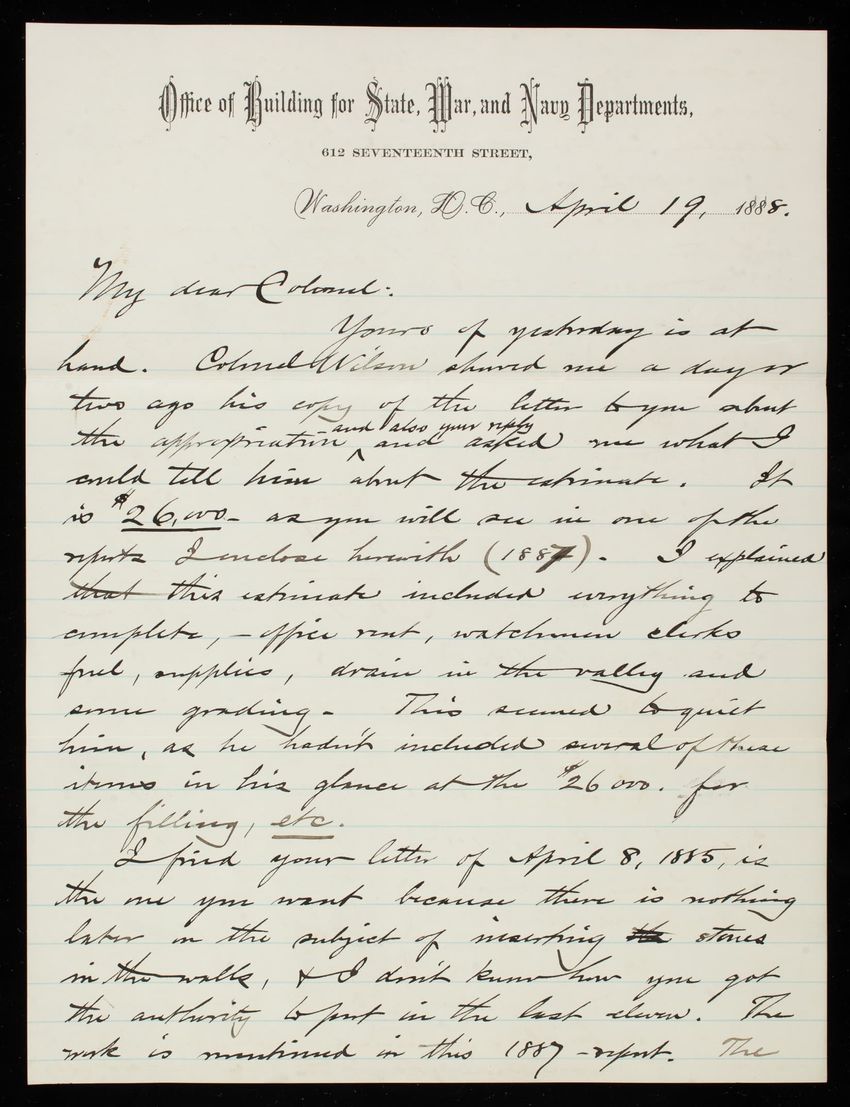 Office of Building for State, War, and Navy Departments,
612 SEVENTEENTH STREET,
Washington, D.C., April 19, 1888.
My dear Colonel:
Yours of yesterday is at
hand. Colonel Wilson showed me a day or
two ago his copy of the letter to you about
and also your reply
the appropriation ^ and asked me what I
could tell him about the estimate. It
is $26,000 - as you will see in one of the
reports I enclose herewith (1887). I explained
that this estimate included everything to
complete, - office rent, watchmen clerks
fuel, supplies, drain in the valley and
some grading - This seemed to quiet
him, as he hadn't included several of these
items in his glance at the $26000. for
the filling, etc.
I find your letter of April 8, 1885, is
the one you want because there is nothing
later on the subject of inserting the stones
in the walls, & I don't know how you got
the authority to put in the last eleven. The
work is mentioned in this 1887 - report. The